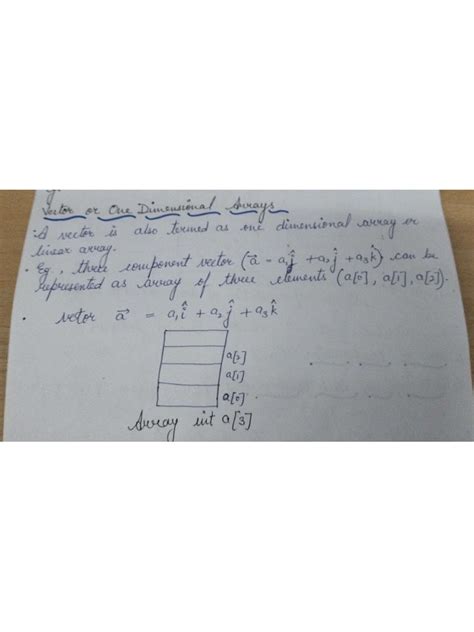 Vector or One Dimensional Arrays
· A vector is also termed as one dimensional array or
linear array.
· Eg., three component vector (a⃗ = a₁ĵ + a₂ĵ + a₃k̂) can be
represented as array of three elements (a[0], a[1], a[2]).
· vector a⃗ = a₁î + a₂ĵ + a₃k̂
a[2]
a[1]
a[0]
Array int a[3]